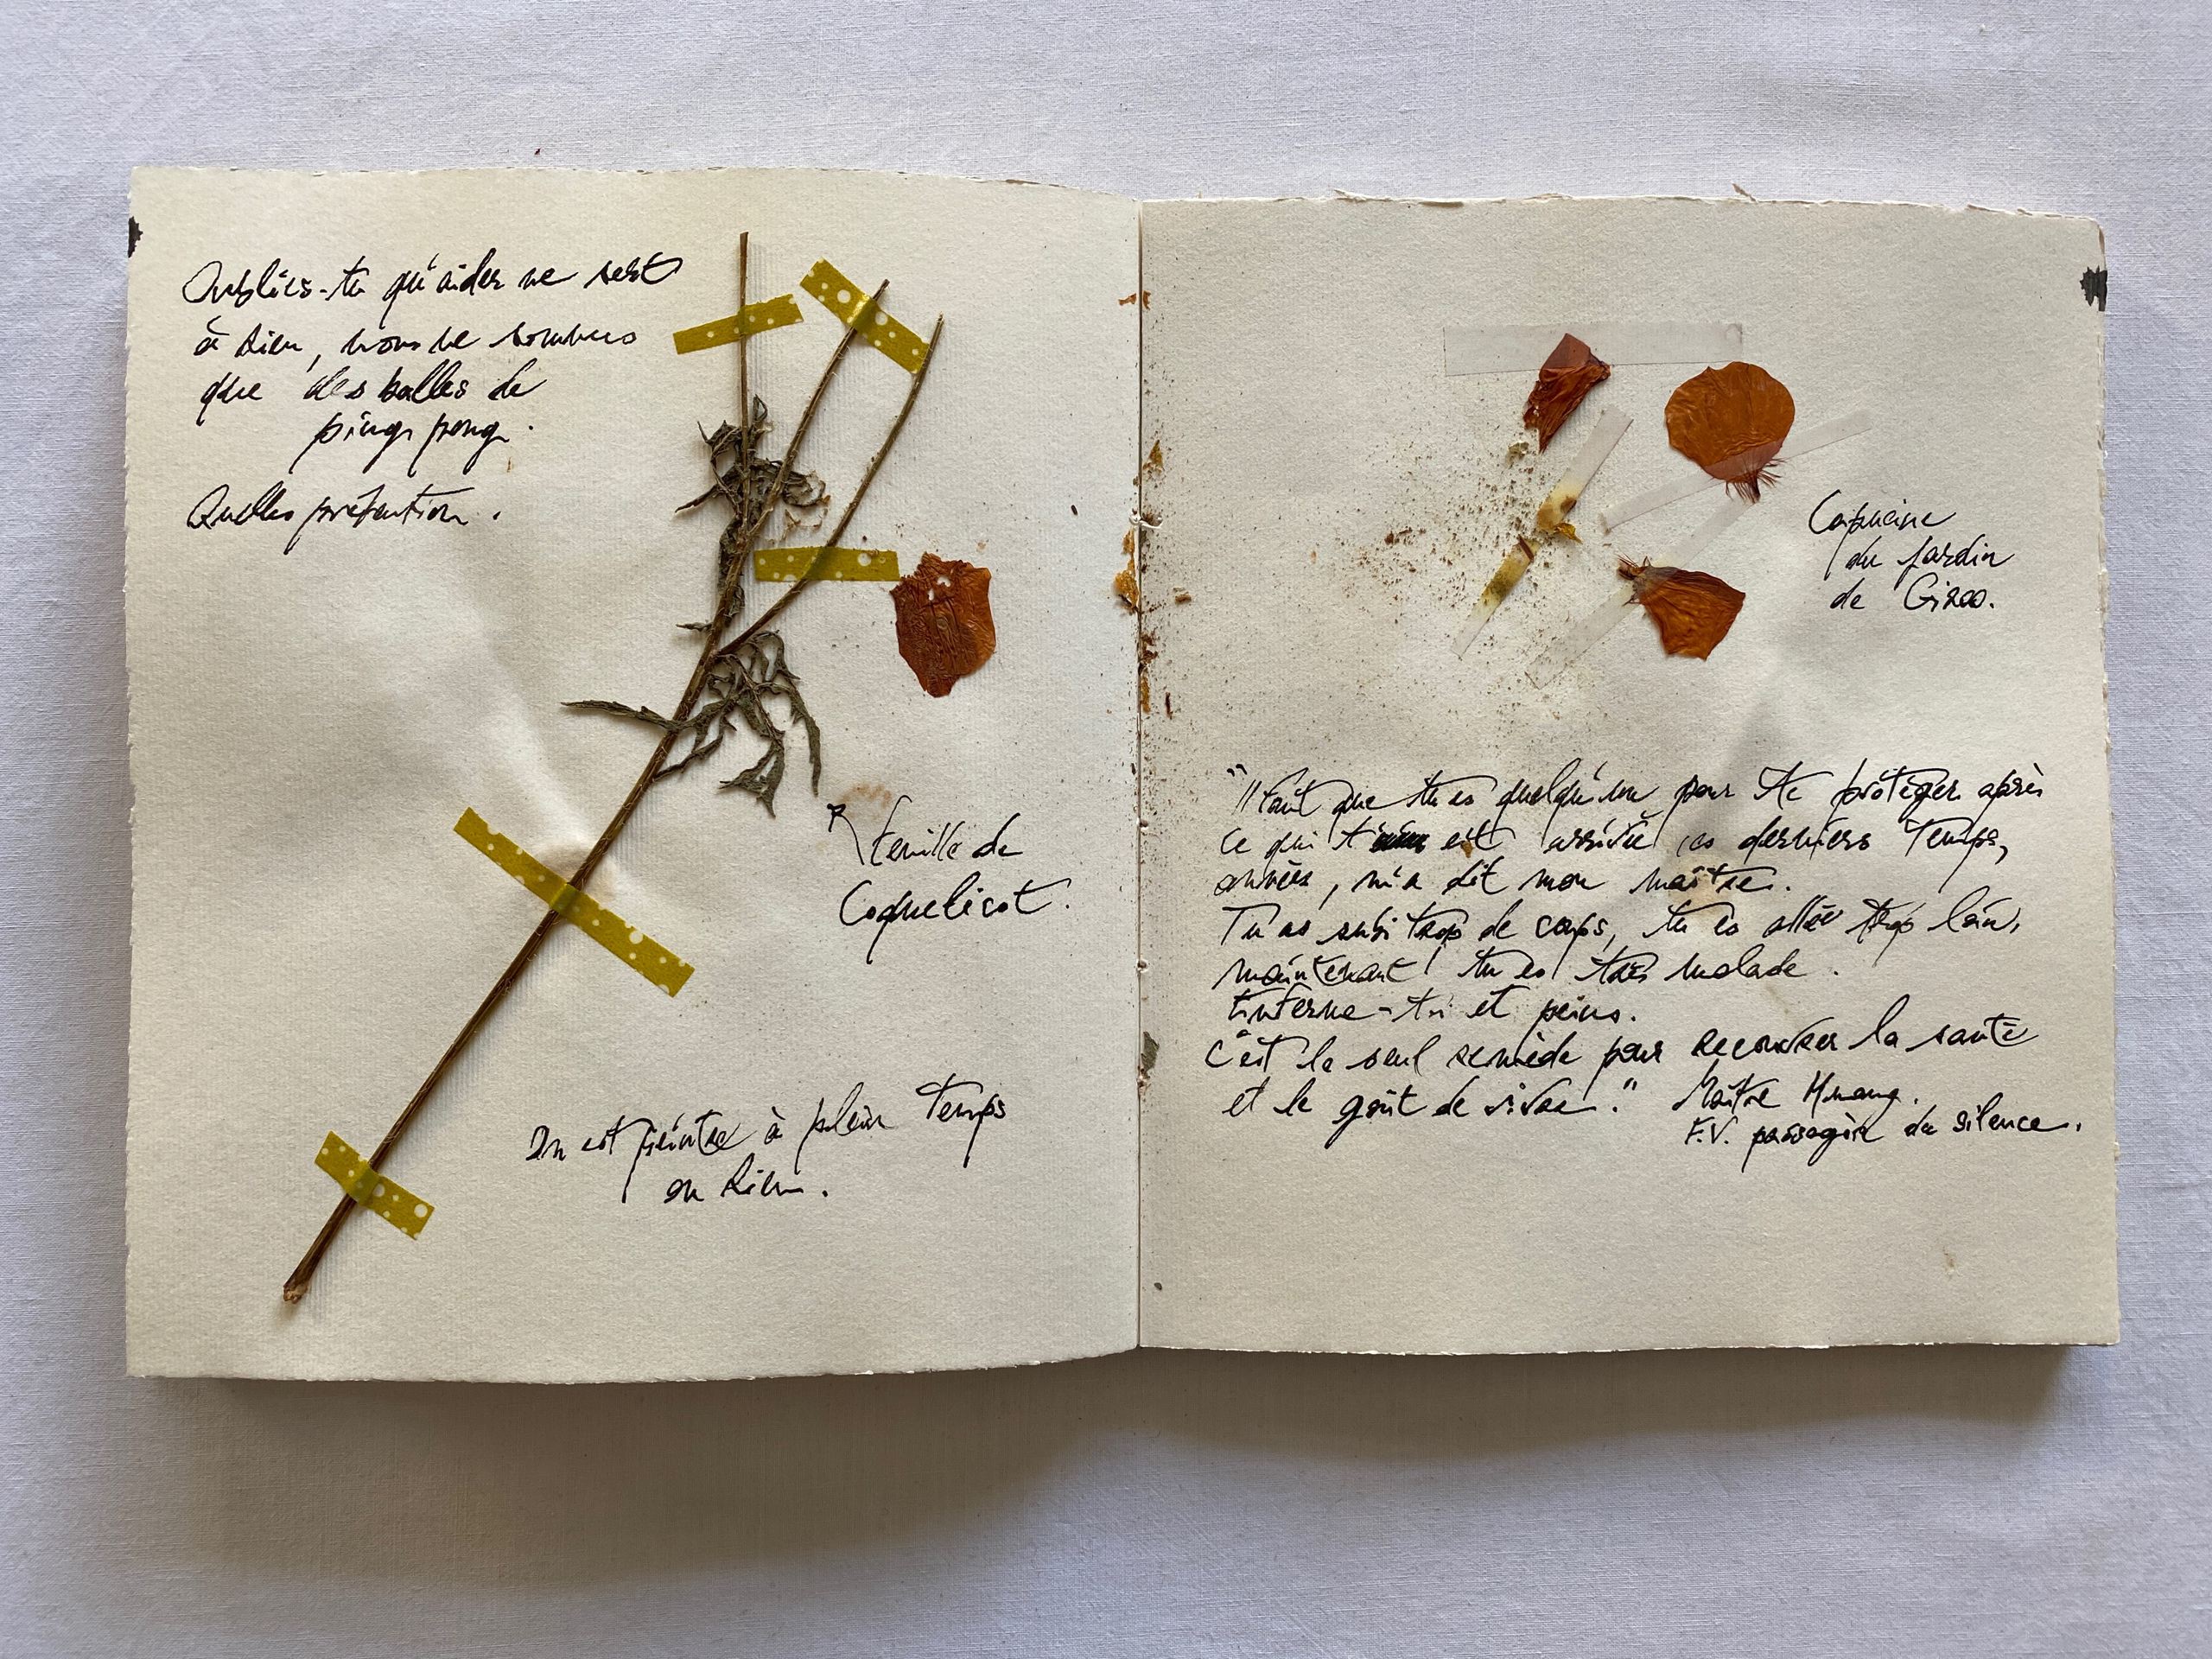 Oublies-tu qu'aider ne sert
à rien, nous ne sommes
que des balles de
ping pong.
Quelles prétention.
Feuille de
Coquelicot.
On est peintre à plein temps
ou rien.
Capucine
du jardin
de
"Il faut que tu es quelqu'un pour te protéger après
ce qui t' est arrivée ces derniers temps,
années, m'a dit mon maître.
Tu as subi trop de coups, tu es allée trop loin,
maintenant tu es très malade.
Enferme-toi et peins.
C'est le seul remède pour recouvrer la santé
et le goût de vivre." Maître Huang.
F.V. passagère du silence.